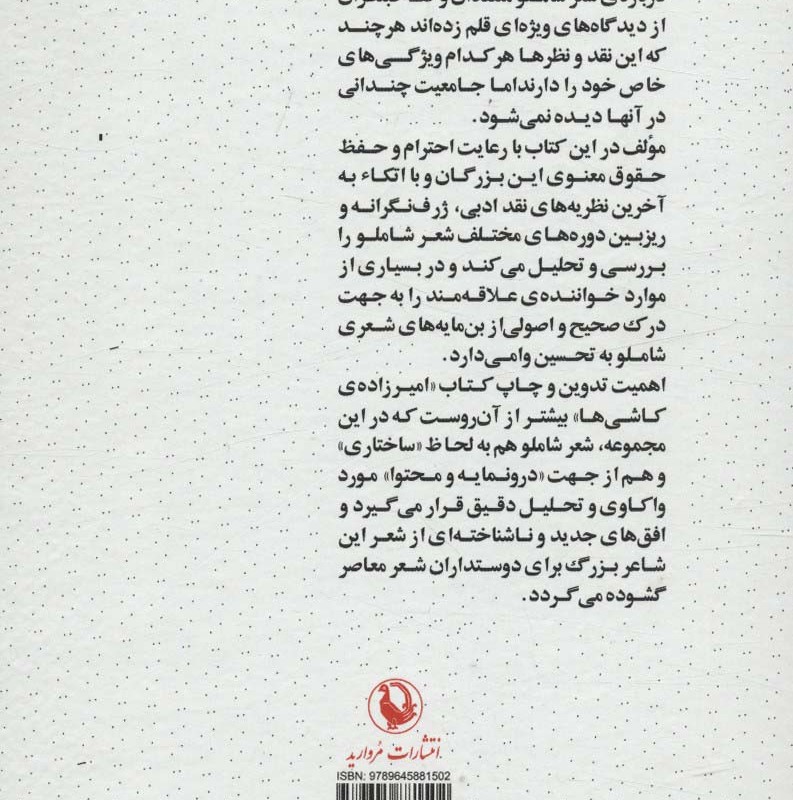 درباره‌ی شعر شاملو
از دیدگاه‌های ویژه‌ای قلم زده‌اند هرچند
که این نقد و نظرها هرکدام ویژگی‌های
خاص خود را دارند اما جامعیت چندانی
در آنها دیده نمی‌شود.
مؤلف در این کتاب با رعایت احترام و حفظ
حقوق معنوی این بزرگان و با اتکاء به
آخرین نظریه‌های نقد ادبی، ژرف‌نگرانه و
ریزبین دوره‌های مختلف شعر شاملو را
بررسی و تحلیل می‌کند و در بسیاری از
موارد خواننده‌ی علاقه‌مند را به جهت
درک صحیح و اصولی از بن‌مایه‌های شعری
شاملو به تحسین وامی‌دارد.
اهمیت تدوین و چاپ کتاب «امیرزاده‌ی
کاشی‌ها» بیشتر از آن‌روست که در این
مجموعه، شعر شاملو هم به لحاظ «ساختاری»
و هم از جهت «درونمایه و محتوا» مورد
واکاوی و تحلیل دقیق قرار می‌گیرد و
افق‌های جدید و ناشناخته‌ای از شعر این
شاعر بزرگ برای دوستداران شعر معاصر
گشوده می‌گردد.
انتشارات مُروارید
ISBN: 9789645881502